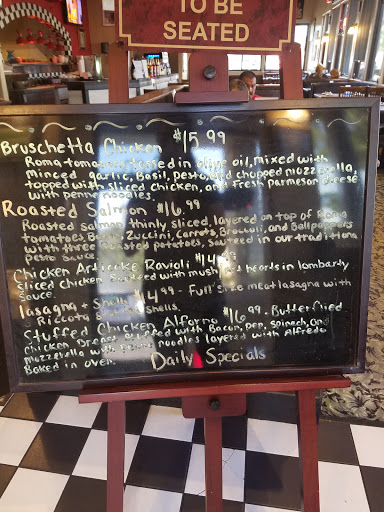 TO BE
SEATED
Bruschetta Chicken $15.99
Roma tomatoes, tossed in olive oil, mixed with
minced garlic, Basil, Pesto, and chopped mozzarella,
topped with sliced chicken, and Fresh parmesan cheese
with penne noodles.
Roasted Salmon $16.99
Roasted Salmon thinly sliced, layered on top of Roma
tomatoes, Zuccini, carrots, Broccoli, and Bellpeppers
with roasted potatoes, Sauteed in our traditional
Pesto Sauce.
Chicken Artichoke Ravioli $14
Sliced chicken Sauteed with mush hearts in lombardy
Sauce.
lasagna + Shells $14.99 - Full size meat lasagna with
Riccota shells.
Stuffed Chicken Alferno $16.99 - Butterflied
chicken Breast stuffed with Bacon, pep, spinach, and
mozzarella with noodles layered with Alfredo
Baked in oven.
Daily Specials